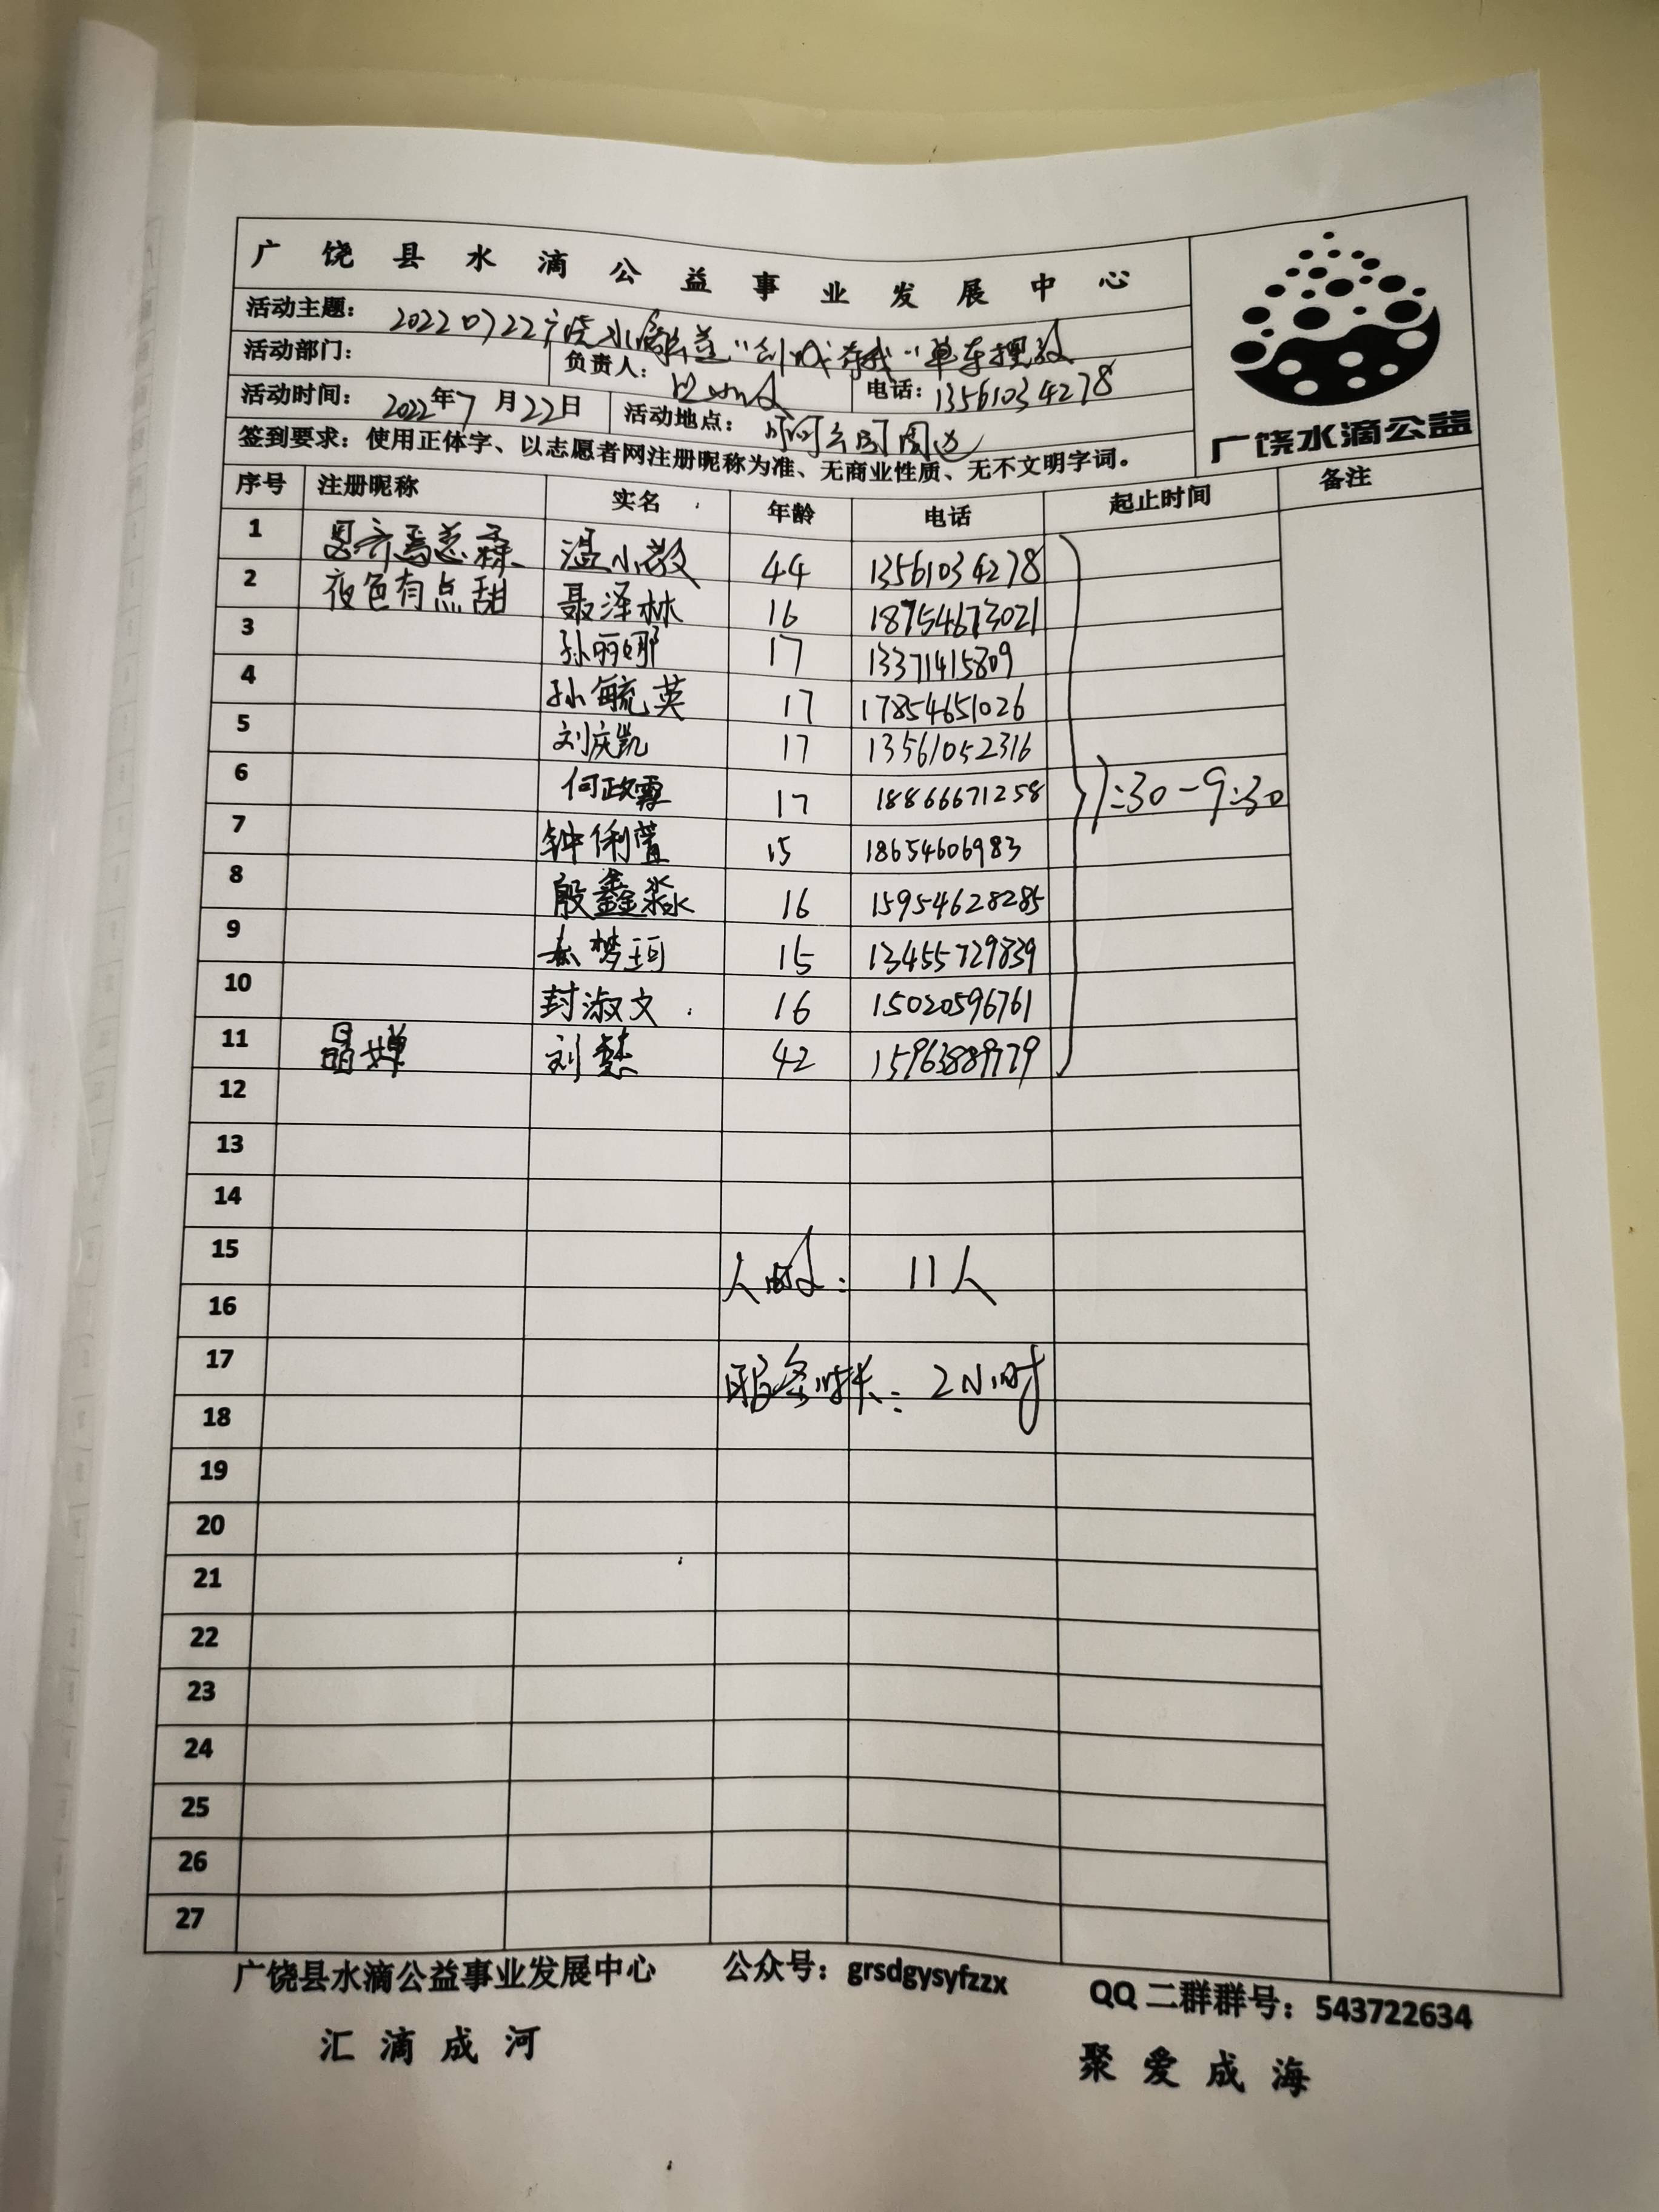 广饶县水滴公益事业发展中心
活动主题：20220722广饶水滴公益"创城有我"单车摆放
活动部门： 负责人： 电话：13561034278
活动时间：2022年7月22日 活动地点：周边
签到要求：使用正体字、以志愿者网注册昵称为准、无商业性质、无不文明字词。
广饶水滴公益
序号 注册昵称 实名 年龄 电话 起止时间 备注
1 44 13561034278
2 夜色有点甜 聂泽林 16 18754673021
3 孙丽娜 17 13371415809
4 孙毓英 17 17854651026
5 刘庆凯 17 13561052316
6 何政霖 17 18866671258
7 钟俐萱 15 18654606983
8 殷鑫淼 16 15954628285
9 梦珂 15 13455729839
10 封淑文 16 15020596761
11 晶婵 刘慧 42 15963889779
7:30-9:30
12
13
14
15 人数： 11人
16
17 服务时长：2小时
18
19
20
21
22
23
24
25
26
27
广饶县水滴公益事业发展中心 公众号：grsdgysyfzzx QQ二群群号：543722634
汇滴成河 聚爱成海